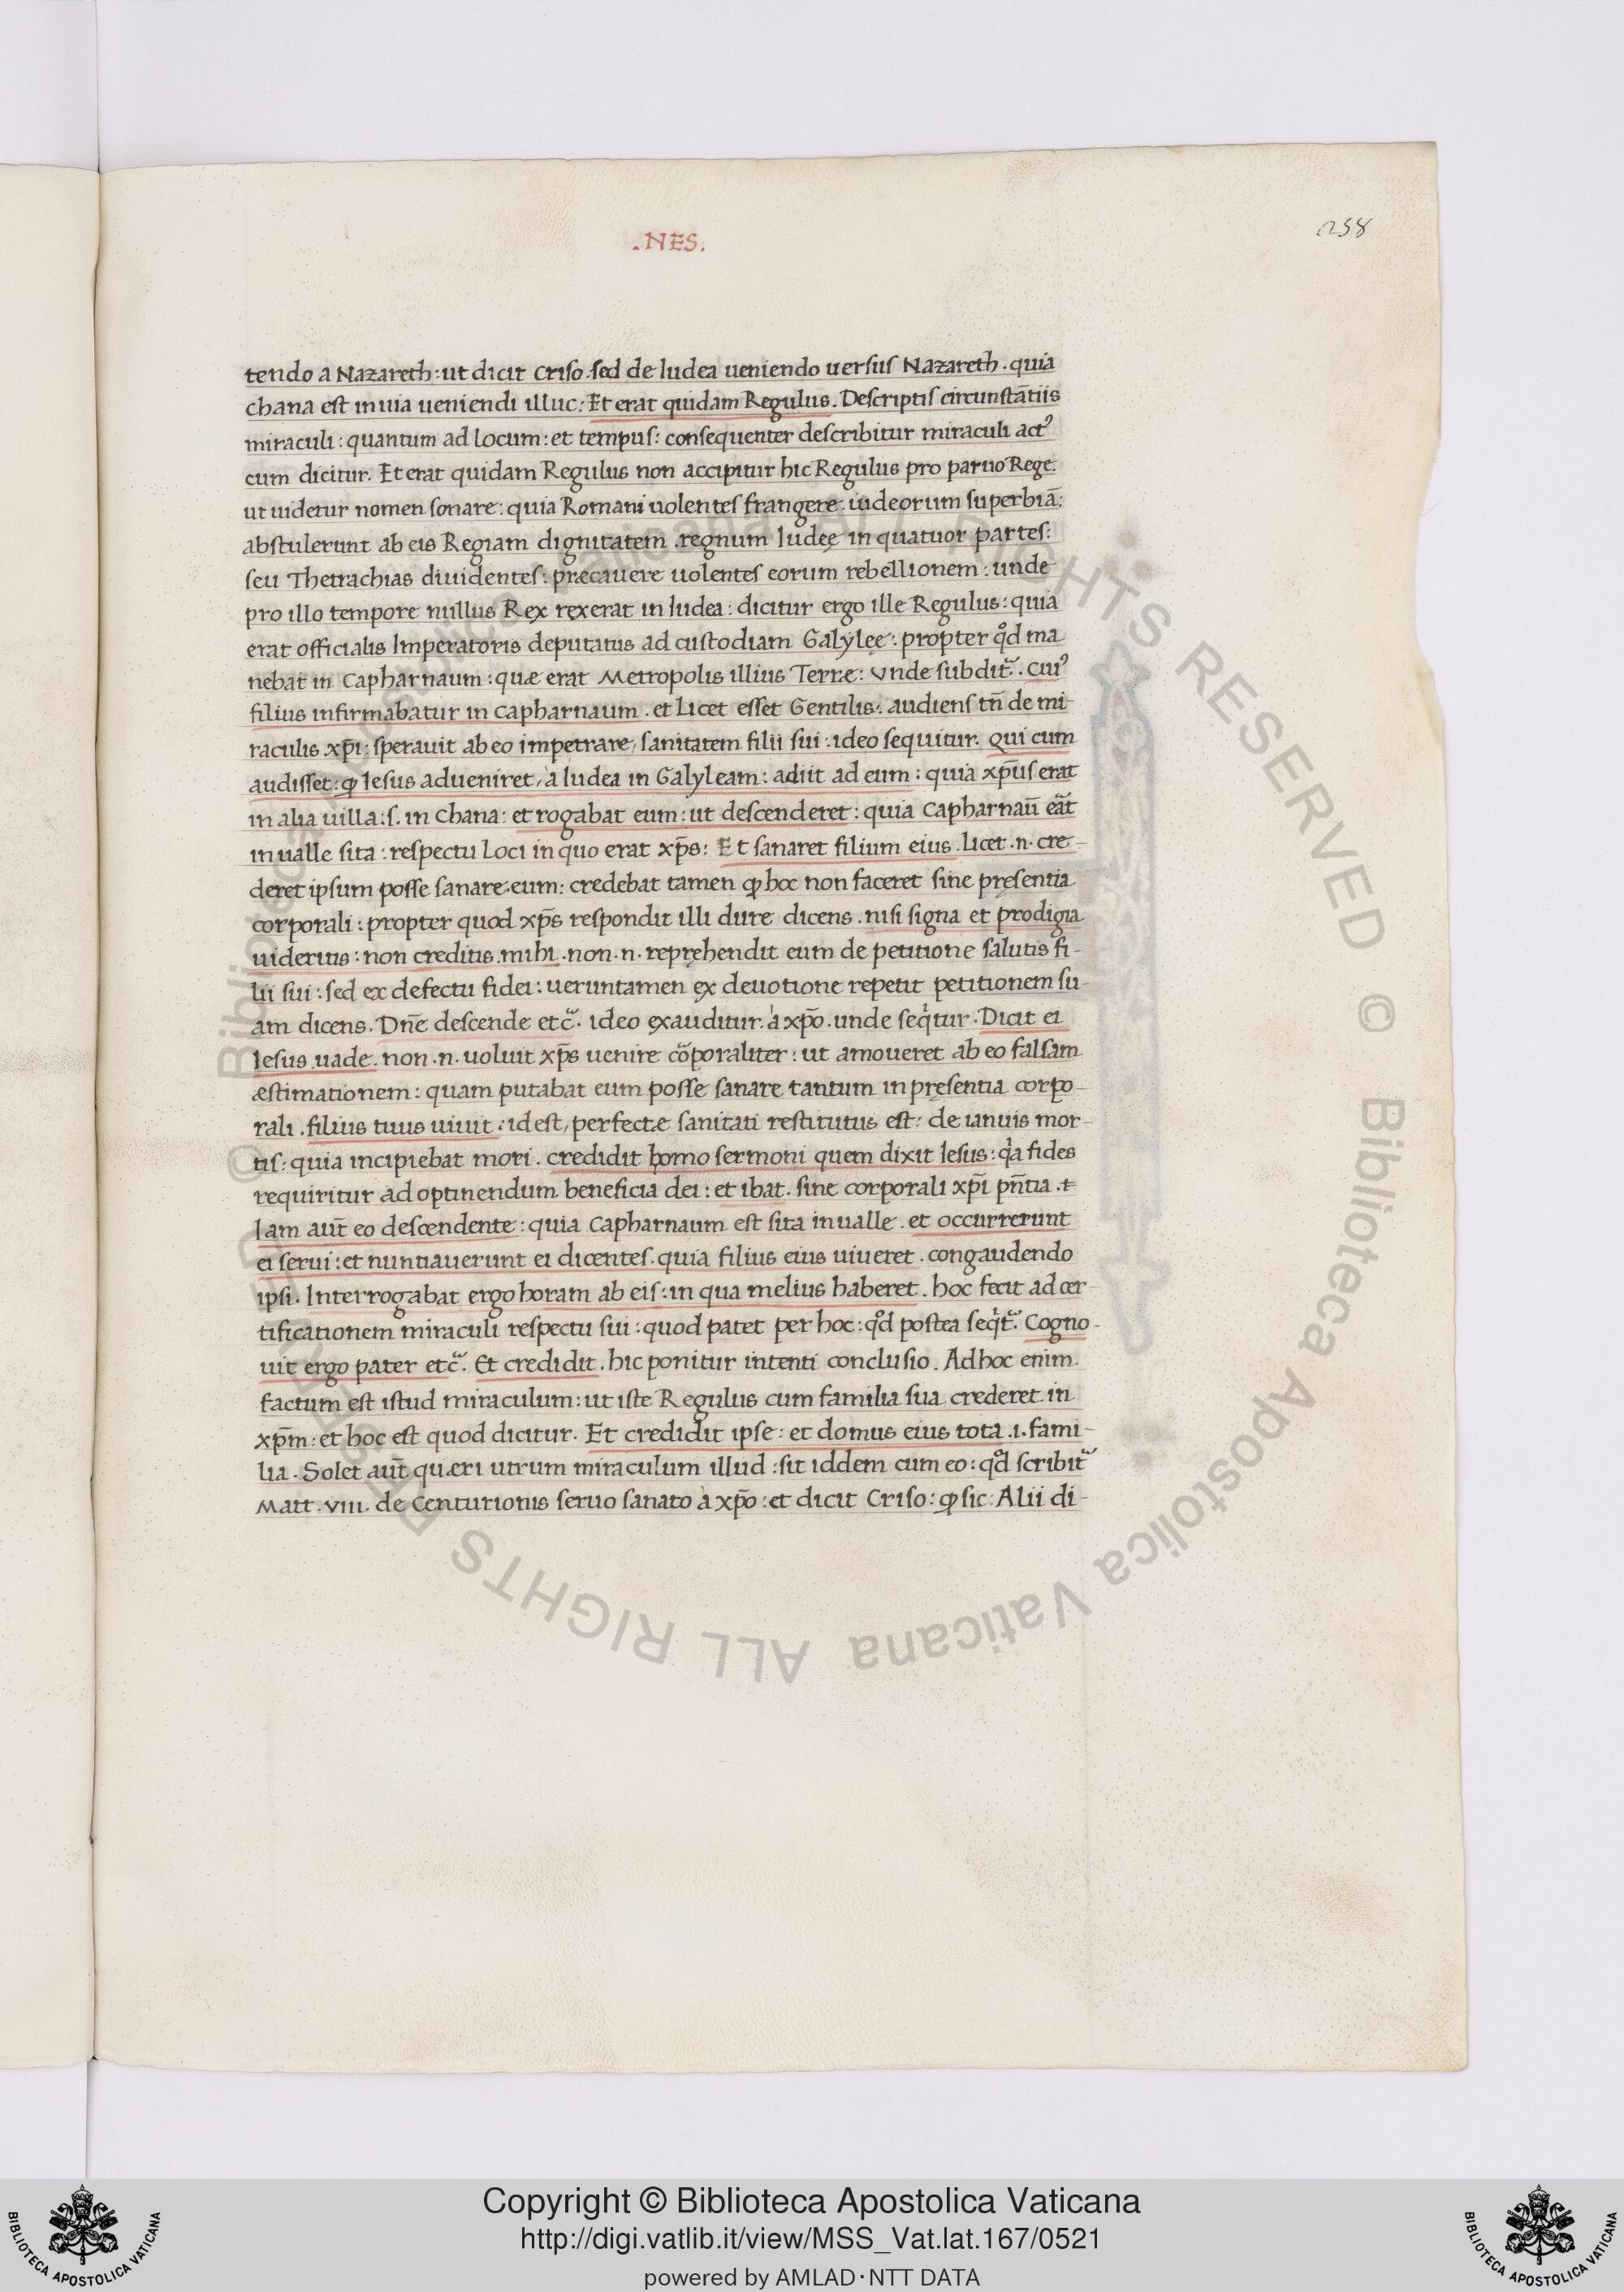 .NES.
258
tendo a Nazareth: ut dicit Criso. sed de Iudea ueniendo uersus Nazareth. quia
chana est in uia ueniendi illuc: Et erat quidam Regulus. Descriptis circunstātiis
miraculi: quantum ad locum: et tempus: consequenter describitur miraculi actꝰ
cum dicitur. Et erat quidam Regulus non accipitur hic Regulus pro paruo Rege.
ut uidetur nomen sonare: quia Romani uolentes frangere iudeorum superbiā:
abstulerunt ab eis Regiam dignitatem. regnum Iudeę in quatuor partes:
seu Thetrachias diuidentes: præcauere uolentes eorum rebellionem: unde
pro illo tempore nullus Rex rexerat in Iudea: dicitur ergo ille Regulus: quia
erat officialis Imperatoris deputatus ad custodiam Galyleę: propter qͦd ma
nebat in Capharnaum: quæ erat Metropolis illius Terræ: Vnde subditᷓ. Cuiꝰ
filius infirmabatur in Capharnaum. et Licet esset Gentilis: audiens tn̄ de mi-
raculis xp̄i: sperauit ab eo impetrare, sanitatem filii sui: ideo sequitur. Qui cum
audisset: ꝙ Iesus adueniret, à Iudea in Galyleam: adiit ad eum: quia xp̄us erat
in alia uilla: s. in Chana: et rogabat eum: ut descenderet: quia Capharnaū eᷓat
in ualle sita: respectu Loci in quo erat xp̄s: Et sanaret filium eius. Licet .n. cre-
deret ipsum posse sanare eum: credebat tamen ꝙ hoc non faceret sine pręsentia
corporali: propter quod xp̄s respondit illi dure dicens. nisi signa et prodigia
uideritis: non creditis mihi. non .n. repręhendit eum de petitione salutis fi-
lii sui: sed ex defectu fidei: ueruntamen ex deuotione repetit petitionem su-
am dicens. Dn̄e descende etcᷓ. ideo exauditur à xp̄o. unde seqͥtur. Dicit ei
Iesus uade. non .n. uoluit xp̄s uenire cōporaliter: ut amoueret ab eo falsam
æstimationem: quam putabat eum posse sanare tantum in pręsentia corpo-
rali. filius tuus uiuit: id est, perfectæ sanitati restitutus est: de ianuis mor-
tis: quia incipiebat mori. credidit homo sermoni quem dixit Iesus: qͥa fides
requiritur ad optinendum beneficia dei: et ibat. sine corporali xp̄i pn̄tia. t
Iam aut̄ eo descendente: quia Capharnaum est sita in ualle. et occurrerunt
ei serui: et nuntiauerunt ei dicentes. quia filius eius uiueret. congaudendo
ipsi. Interrogabat ergo horam ab eis: in qua melius haberet. hoc fecit ad cer-
tificationem miraculi respectu sui: quod patet per hoc: qͦd postea seqͥtᷓ. Cogno-
uit ergo pater etcᷓ. Et credidit. hic ponitur intenti conclusio. Ad hoc enim
factum est istud miraculum: ut iste Regulus cum familia sua crederet in
xp̄m: et hoc est quod dicitur. Et credidit ipse: et domus eius tota .i. fami-
lia. Solet aut̄ quæri utrum miraculum illud: sit iddem cum eo: qͦd scribitᷓ
Matt. viii. de Centurionis seruo sanato à xp̄o: et dicit Criso: ꝙ sic: Alii di-
© Biblioteca Apostolica Vaticana ALL RIGHTS RESERVED © Biblioteca Apostolica Vaticana ALL RIGHTS RESERVED
BIBLIOTECA APOSTOLICA VATICANA
Copyright © Biblioteca Apostolica Vaticana
http://digi.vatlib.it/view/MSS_Vat.lat.167/0521
powered by AMLAD·NTT DATA
BIBLIOTECA APOSTOLICA VATICANA